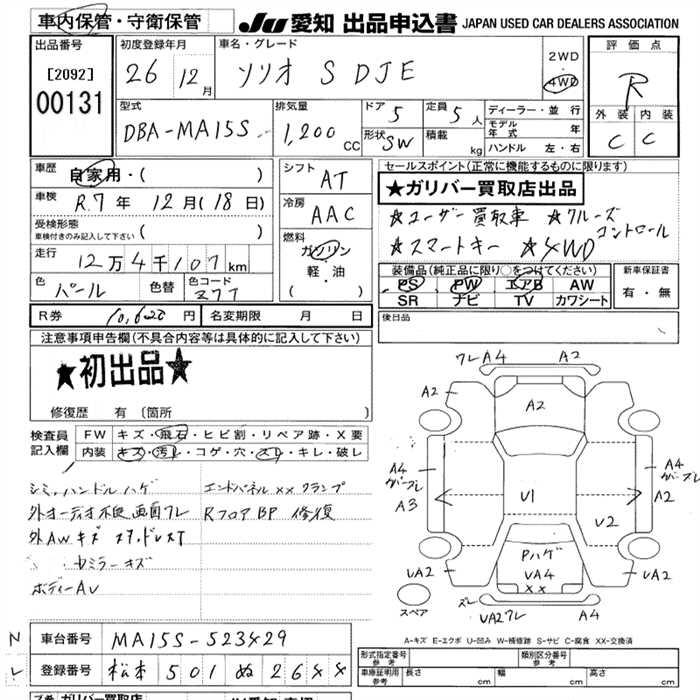 車内保管・守衛保管
JU 愛知 出品申込書 JAPAN USED CAR DEALERS ASSOCIATION
出品番号 初度登録年月 車名・グレード 評価点
[2092] 26 12月 ソリオ S DJE 2WD・4WD R
00131
型式 排気量 ドア 5 定員 5人 ディーラー・並行 外装 内装
DBA-MA15S 1,200 CC 形状 SW 積載 kg モデル年式 年 C C
ハンドル 左・右
車歴 自家用・( ) シフト AT セールスポイント(正常に機能するものに限ります)
車検 R.7年 12月(18日) 冷房 AAC ★ガリバー買取店出品
受検形態 ( ) ☆ユーザー買取車 ☆クルーズコントロール
車検付きのみ記入して下さい
走行 12万4千107km 燃料 ガソリン・軽・油 ( ) ☆スマートキー ☆4WD
装備品(純正品に限り○をつけてください) 新車保証書
色 パール 色替 色コード Z7T PS PW エアB AW 有・無
SR ナビ TV カワシート
R券 10,620円 名変期限 月 日 後日品
注意事項申告欄(不具合内容等は具体的に記入して下さい)
★初出品★
修復歴 有 [箇所 ]
検査員記入欄 FW キズ・飛石・ヒビ割・リペア跡・X要
内装 キズ・汚レ・コゲ・穴・スレ・キレ・破レ
シミ,ハンドルハゲ エンドパネルXXクランプ
外オーディオ不良 画面ワレ RフロアBP 修復
外AWキズ
ミラーキズ
ボディーAU
ワレA4 A2
A2 A2
A4 A4
A3 A2
U1 U2
UA2 PハゲUA4 XX UA2
スペア ズレ UA2ワレ A4
A-キズ E-エクボ U-凹み W-補修跡 S-サビ C-腐食 XX-交換済
車台番号 MA15S-523429
登録番号 松本 501 ぬ 2644
形式指定番号 参考 類別区分番号 参考
車庫証明用 参考 長さ cm 幅 cm 高さ cm
ガリバー買取店